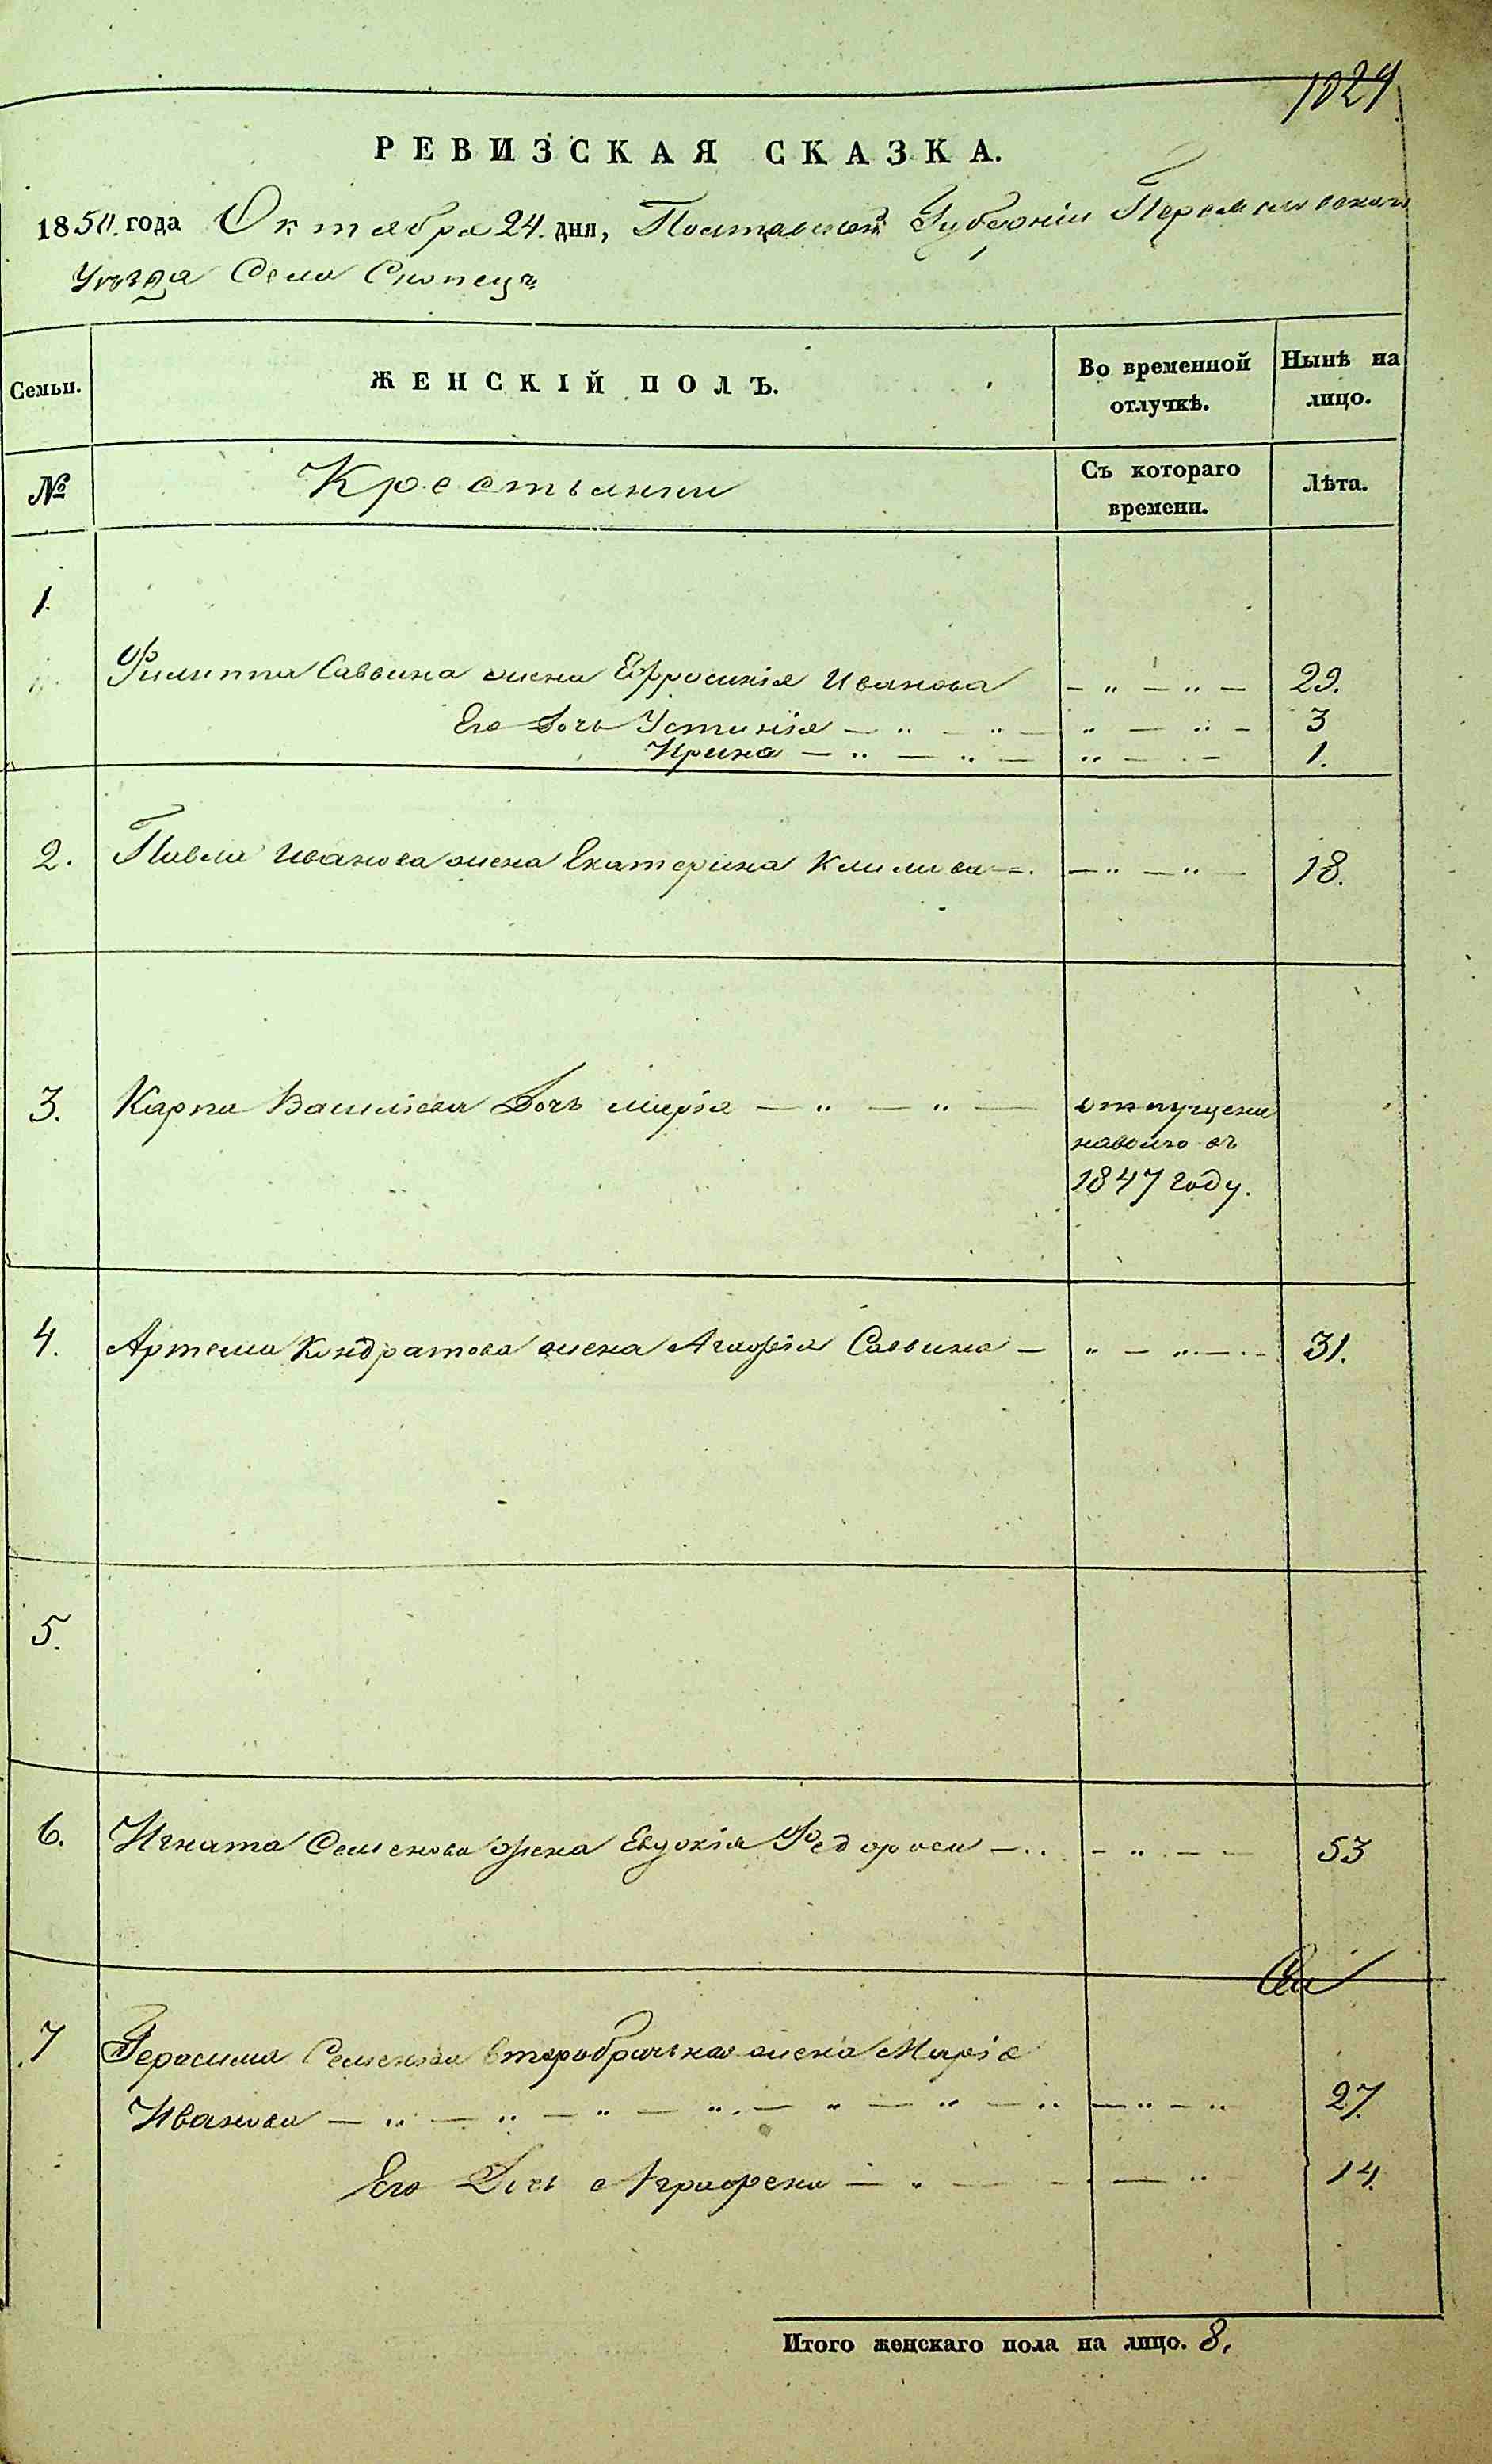 1024
РЕВИЗСКАЯ СКАЗКА.
1850. года Октября 24. дня, Полтавской Губерніи Переяславскаго
Уѣзда Села Скопецъ
Семьи. ЖЕНСКІЙ ПОЛЪ. Во временной отлучкѣ. Нынѣ на лицо.
№ Крестьянки Съ котораго времени. Лѣта.
1.
Филиппа Саввина жена Ефросинія Иванова — „ — „ — 29.
Его дочь Устинія — „ — „ — „ — „ — 3
Ирина — „ — „ — „ — „ — 1.
2. Павла Иванова жена Екатерина Климова — „ — „ — 18.
3. Карпа Васильева дочь Марія — „ — „ — отпущена
наволю въ
1847 году.
4. Артема Кондратова жена Агафія Саввина — „ — „ — 31.
5.
6. Игната Семенова жена Евдокія Федорова — „ — „ — — 53
7 Герасима Семенова второбрачная жена Марія
Иванова — „ — „ — „ — „ — „ — „ — „ — „ — „ 27.
Его Дочь Аграфена — „ — — — „ 14.
Итого женскаго пола на лицо. 8.